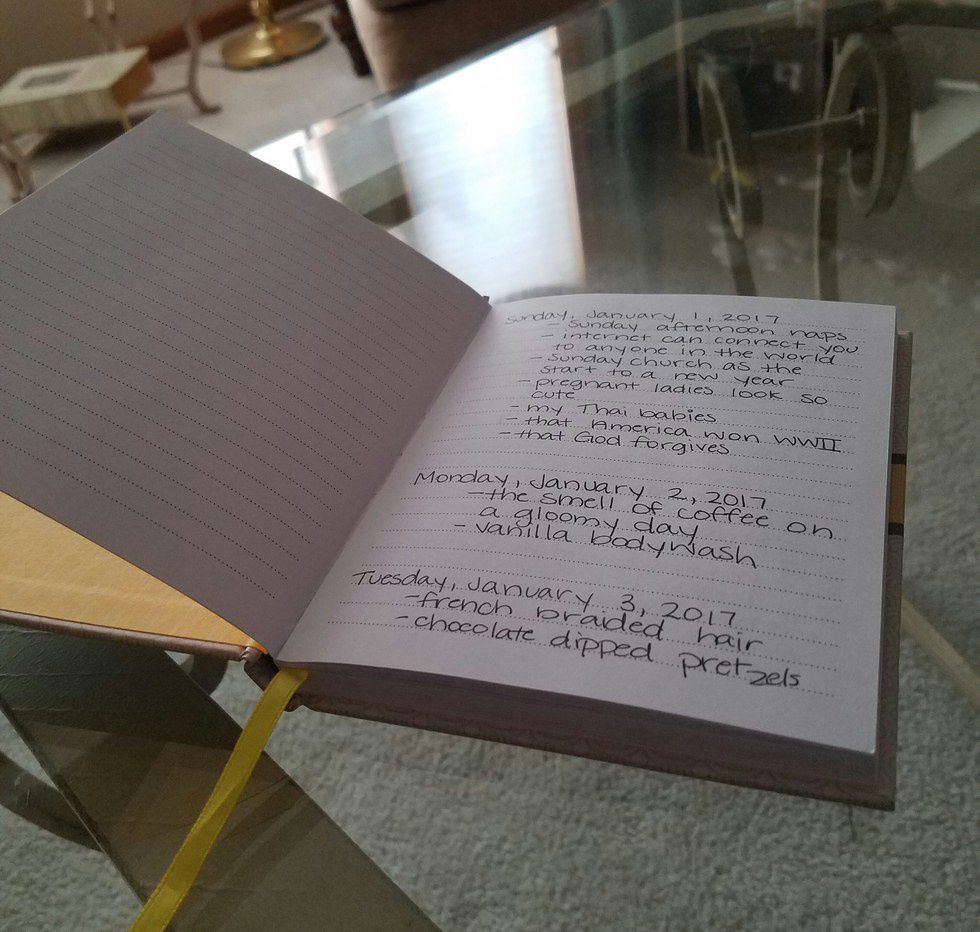 Sunday, January 1, 2017
- Sunday afternoon naps
- internet can connect you
to anyone in the world
- Sunday church as the
start to a new year
- pregnant ladies look so
cute
- my Thai babies
- that America won WWII
- that God forgives
Monday, January 2, 2017
- the smell of coffee on
a gloomy day
- vanilla bodywash
Tuesday, January 3, 2017
- french braided hair
- chocolate dipped pretzels